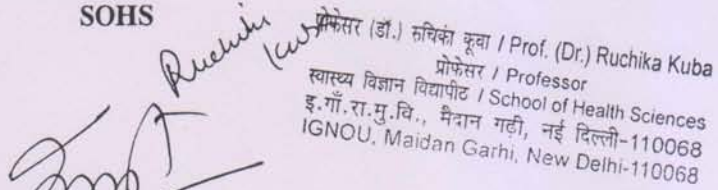 SOHS
Ruchika
Kuba
प्रोफेसर (डॉ.) रुचिका कूबा / Prof. (Dr.) Ruchika Kuba
प्रोफेसर / Professor
स्वास्थ्य विज्ञान विद्यापीठ / School of Health Sciences
इ.गाँ.रा.मु.वि., मैदान गढ़ी, नई दिल्ली-110068
IGNOU, Maidan Garhi, New Delhi-110068